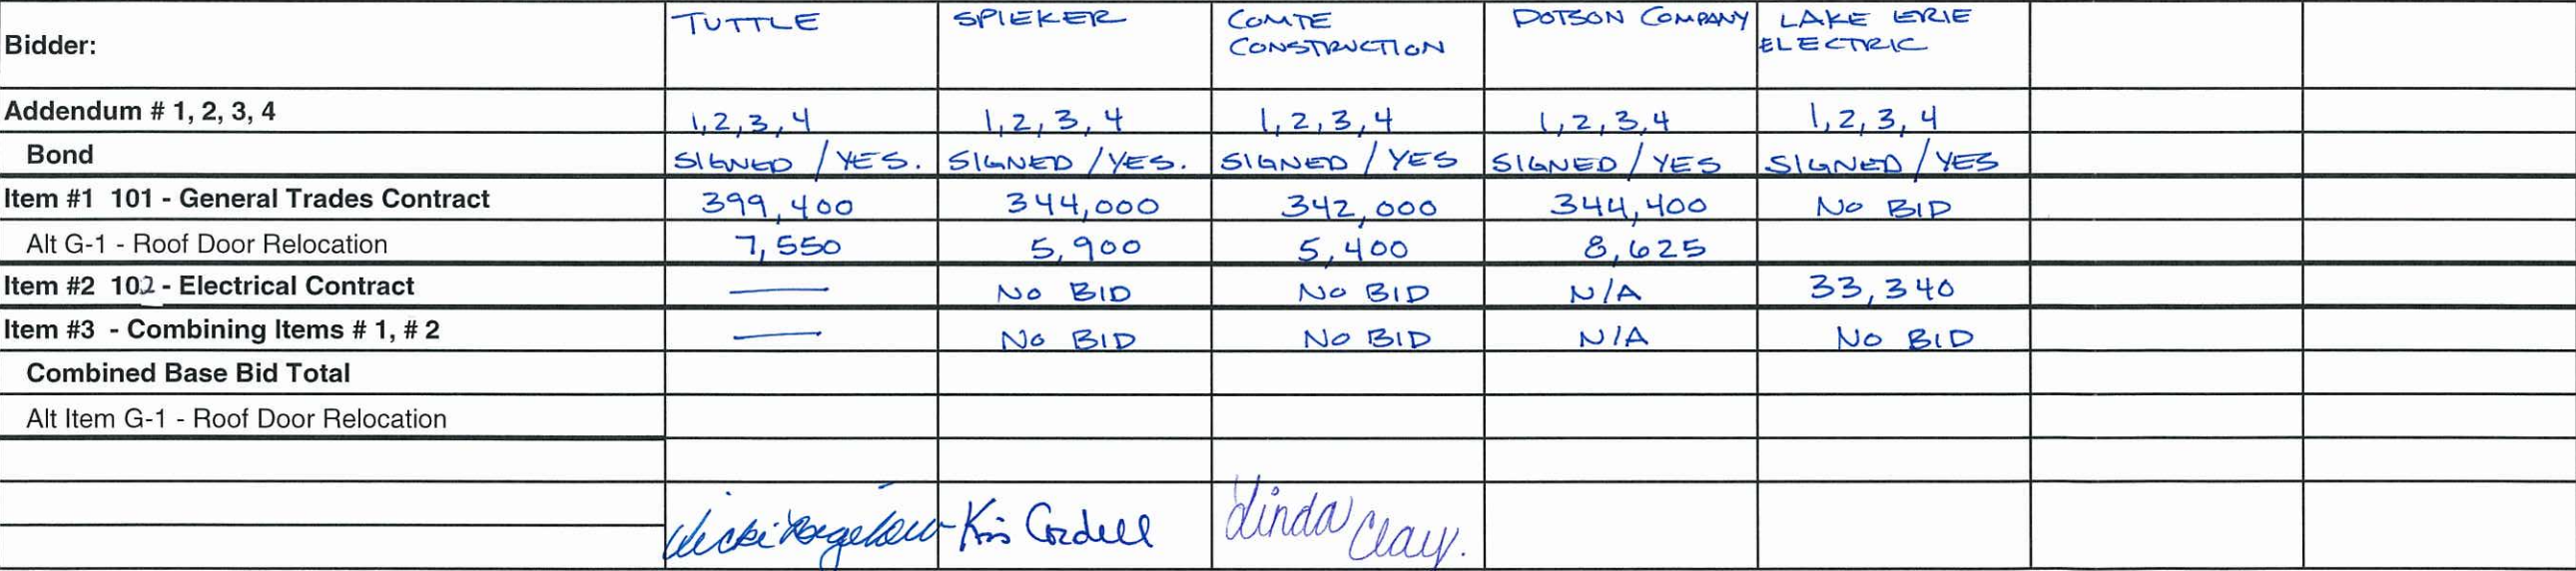 Bidder: TUTTLE SPIEKER COMTE CONSTRUCTION DOTSON COMPANY LAKE ERIE ELECTRIC
Addendum # 1, 2, 3, 4 1,2,3,4 1,2,3,4 1,2,3,4 1,2,3,4 1,2,3,4
Bond SIGNED / YES. SIGNED / YES. SIGNED / YES SIGNED / YES SIGNED / YES
Item #1 101 - General Trades Contract 399,400 344,000 342,000 344,400 NO BID
Alt G-1 - Roof Door Relocation 7,550 5,900 5,400 8,625
Item #2 102 - Electrical Contract — NO BID NO BID N/A 33,340
Item #3 - Combining Items # 1, # 2 — NO BID NO BID N/A NO BID
Combined Base Bid Total
Alt Item G-1 - Roof Door Relocation
Vicki Kris Cordell Linda Clay.